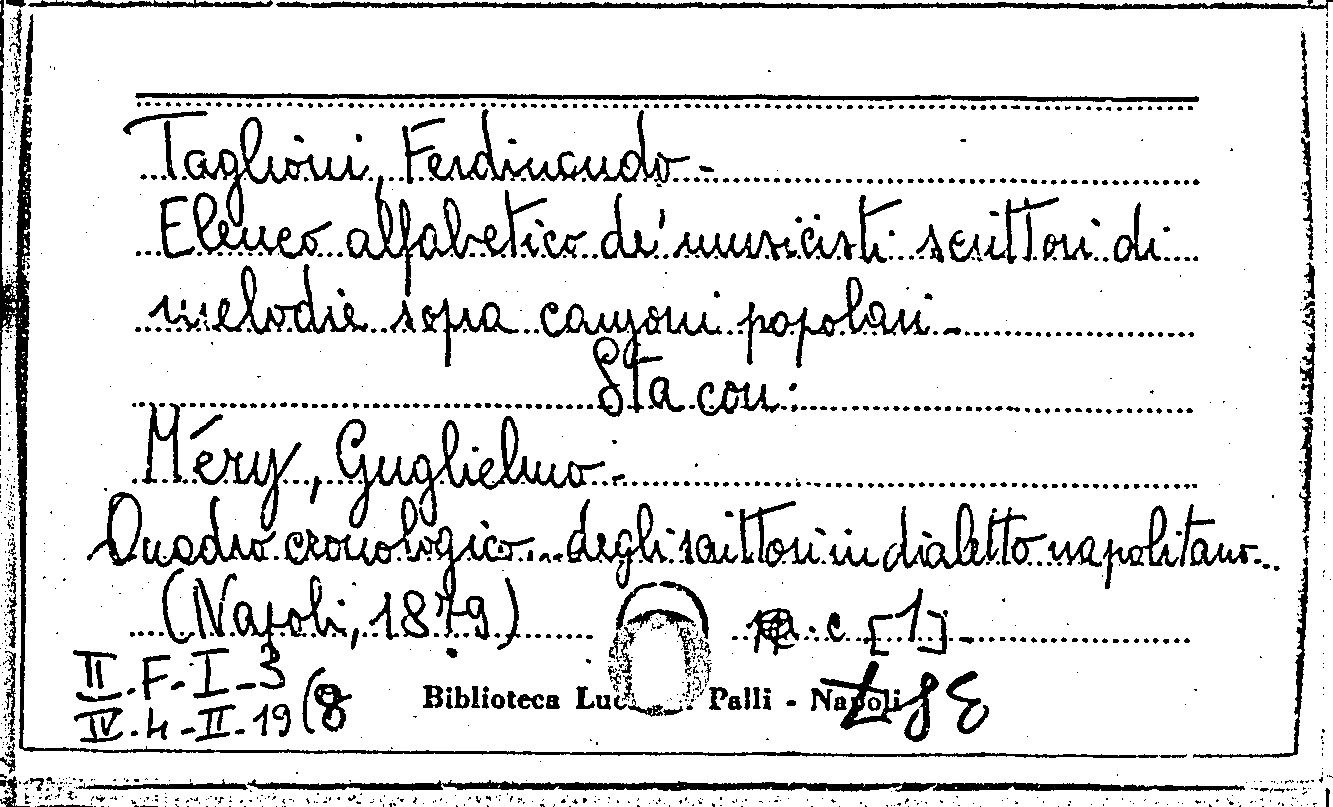 Taglioni, Ferdinando -
Elenco alfabetico de' musicisti scrittori di
melodie sopra canzoni popolari -
Sta con:
Méry, Guglielmo -
Quadro cronologico... degli scrittori in dialetto napolitano...
(Napoli, 1879) c [1] -
II. F - I - 3
IV. 4 - II - 19 (8
Biblioteca Palli - Napoli